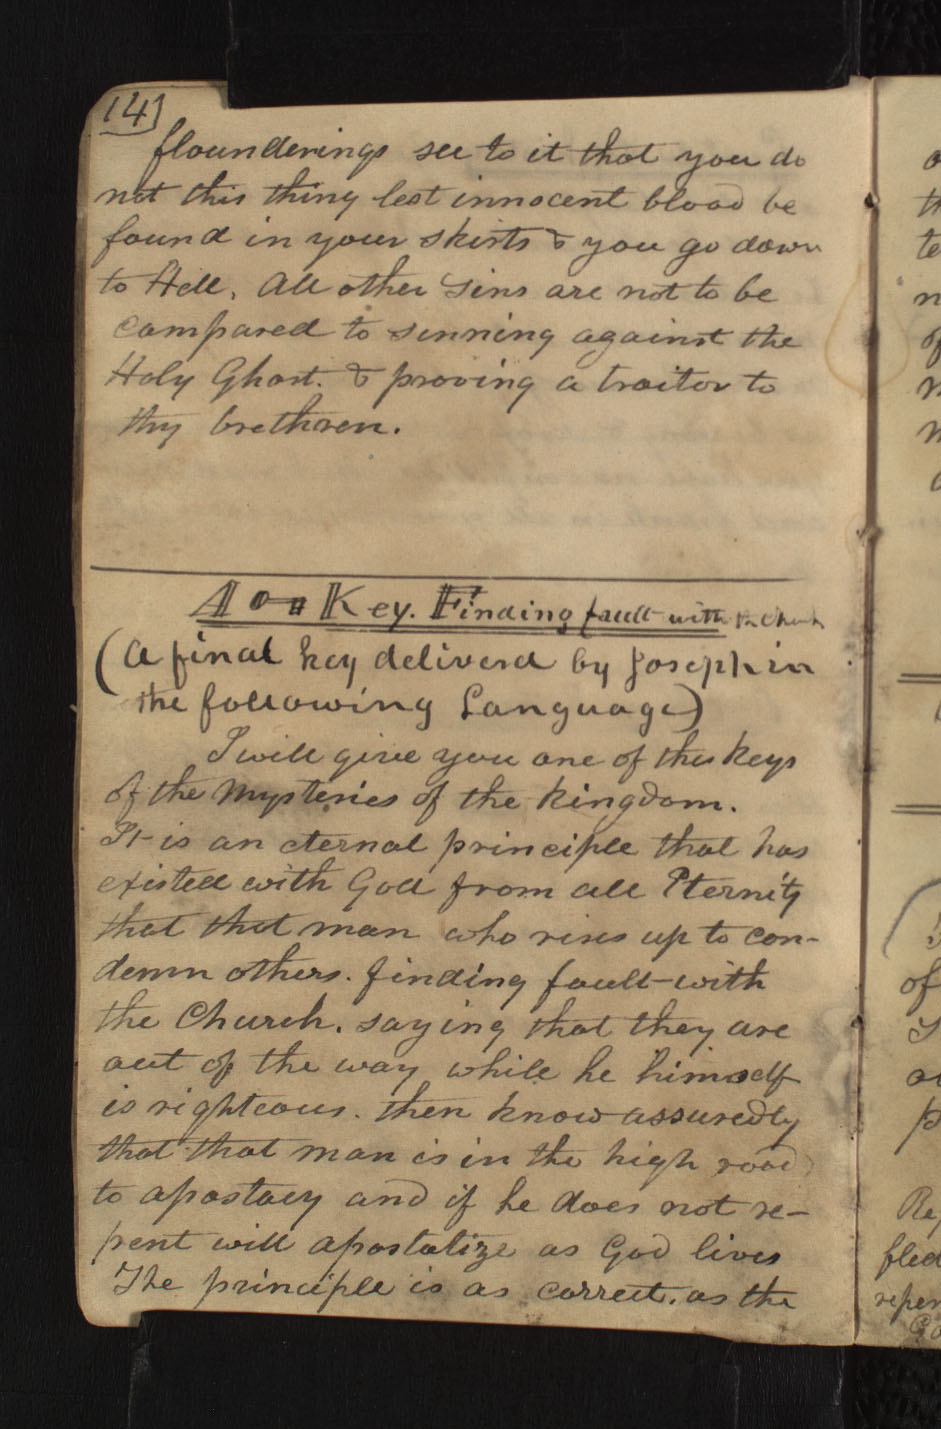 14
flounderings see to it that you do
not this thing lest innocent blood be
found in your skirts & you go down
to Hell. All other sins are not to be
compared to sinning against the
Holy Ghost. & proving a traitor to
thy brethren.
A Key. Finding fault with the Church
(A final key deliverd by Joseph in
the following Language)
I will give you one of the keys
of the mysteries of the kingdom.
It is an eternal principle that has
existed with God from all Eternity
that that man who rises up to con-
demn others. finding fault with
the Church. saying that they are
out of the way while he himself
is righteous. then know assuredly
that that man is in the high road
to apostacy and if he does not re-
pent will apostatize as God lives
The principle is as correct. as the
of
Re
fled
repen